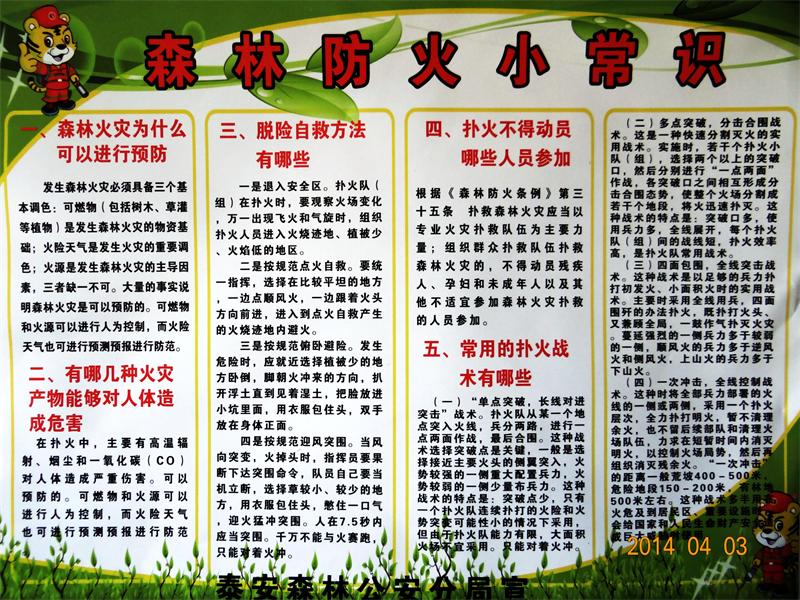 森林防火小常识
一、森林火灾为什么
可以进行预防
发生森林火灾必须具备三个基
本调色：可燃物（包括树木、草灌
等植物）是发生森林火灾的物资基
础；火险天气是发生火灾的重要调
色；火源是发生森林火灾的主导因
素，三者缺一不可。大量的事实说
明森林火灾是可以预防的。可燃物
和火源可以进行人为控制，而火险
天气也可进行预测预报进行防范。
二、有哪几种火灾
产物能够对人体造
成危害
在扑火中，主要有高温辐
射、烟尘和一氧化碳（CO）
对人体造成严重伤害。可以
预防的。可燃物和火源可以
进行人为控制，而火险天气
也可进行预测预报进行防范
三、脱险自救方法
有哪些
一是退入安全区。扑火队（
组）在扑火时，要观察火场变化，
万一出现飞火和气旋时，组织
扑火人员进入火烧迹地、植被少
、火焰低的地区。
二是按规范点火自救。要统
一指挥，选择在比较平坦的地方
，一边点顺风火，一边跟着火头
方向前进，进入到点火自救产生
的火烧迹地内避火。
三是按规范俯卧避险。发生
危险时，应就近选择植被少的地
方卧倒，脚朝火冲来的方向，扒
开浮土直到见着湿土，把脸放进
小坑里面，用衣服包住头，双手
放在身体正面。
四是按规范迎风突围。当风
向突变，火掉头时，指挥员要果
断下达突围命令，队员自己要当
机立断，选择草较小、较少的地
方，用衣服包住头，憋住一口气
，迎火猛冲突围。人在7.5秒内
应当突围。千万不能与火赛跑，
只能对着火冲。
四、扑火不得动员
哪些人员参加
根据《森林防火条例》第三
十五条 扑救森林火灾应当以
专业火灾扑救队伍为主要力
量；组织群众扑救队伍扑救
森林火灾的，不得动员残疾
人、孕妇和未成年人以及其
他不适宜参加森林火灾扑救
的人员参加。
五、常用的扑火战
术有哪些
（一）“单点突破，长线对进
突击”战术。扑火队从某一个地
点突入火线，兵分两路，进行一
点两面作战，最后合围。这种战
术选择突破点是关键，一般是选
择接近主要火头的侧翼突入，火
势较强的一侧重大配置兵力，火
势较弱的一侧少量布兵力。这种
战术的特点是：突破点少，只有
一个扑火队连续扑打的火险和火
势突变可能性小的情况下采用，
但由于扑火队能力有限，大面积
火场不宜采用。只能对着火冲。
（二）多点突破，分击合围战
术。这是一种快速分割灭火的实
用战术。实施时，若干个扑火小
队（组），选择两个以上的突破
口，然后分别进行“一点两面”
作战，各突破口之间相互形成分
击合围态势，使整个火场分割成
若干个地段，将火迅速扑灭。这
种战术的特点是：突破口多，使
用兵力多，全线展开，每个扑火
队（组）间的战线短，扑火效率
高，是扑火队常用战术。
（三）四面包围，全线突击战
术。这种战术是以足够的兵力扑打
扑打初发火、小面积火时的实用战
术。主要时采用全线用兵，四面
围歼的办法扑火，既扑打火头、
又兼顾全局，一鼓作气扑灭火灾
。蔓延强烈的一侧兵力多于较弱
的一侧，顺风火的兵力多于逆风
火和侧风火，上山火的兵力多于
下山火。
（四）一次冲击，全线控制战
术。这种时将全部兵力部署的火
线的一侧或两侧，采用一个扑火
层次，全力扑打明火，暂不清理
余火，也不留后续部队和清理火
场队伍，力求在短暂时间内消灭明
火，以控制火场局势，然后再
组织消灭残余火。“一次冲击”
的距离一般宽域400-500米，
危险地段150-200米，有林地
500米左右。这种战术多半用在
火危及到居民区、重要设施时
会给国家和人民生命财产安全
泰安森林公安分局宣
2014 04 03